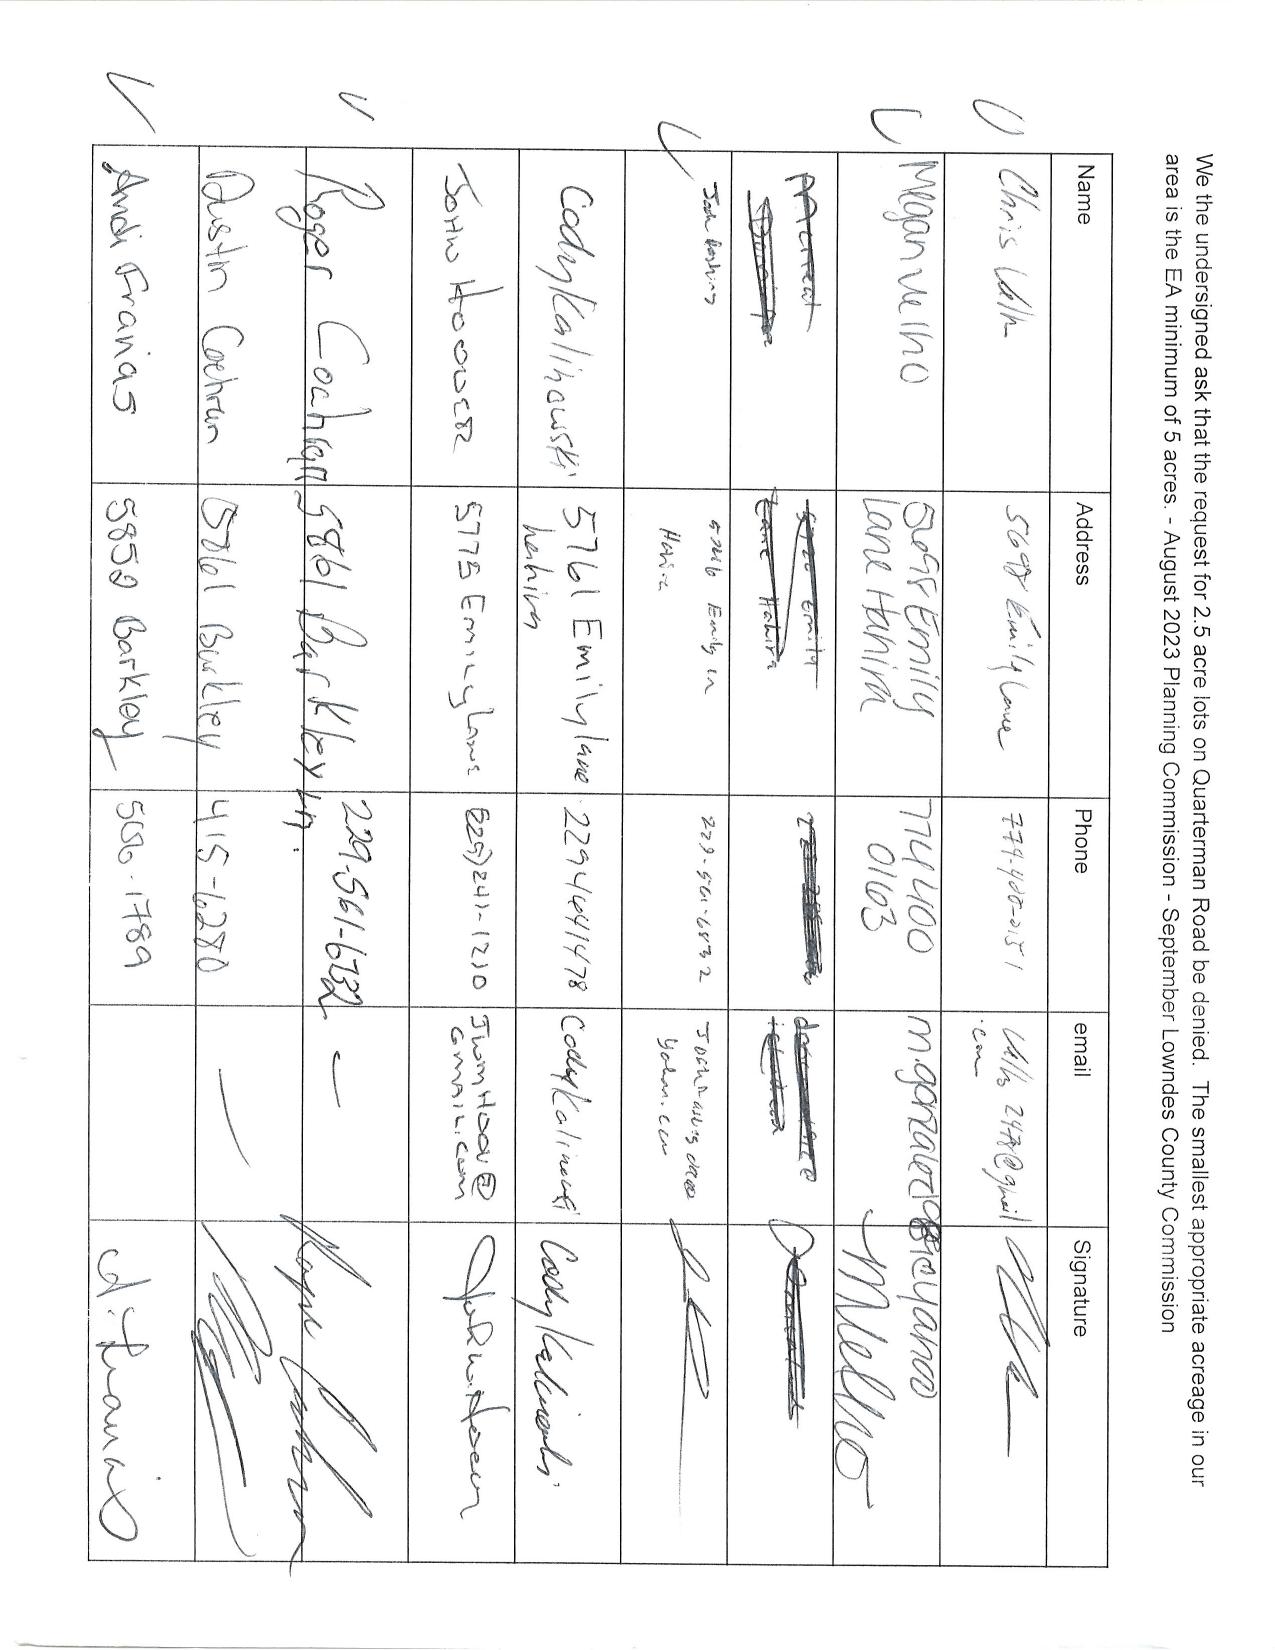 We the undersigned ask that the request for 2.5 acre lots on Quarterman Road be denied. The smallest appropriate acreage in our
area is the EA minimum of 5 acres. - August 2023 Planning Commission - September Lowndes County Commission
Name Address Phone email Signature
Chris 5698 Emily Lane
Megan Melho 5698 Emily 774 400 m.gonzalez
Lane Hahira 0163
Emily
Lane Hahira
Josh Emily Ln 229-561-6832
Hahira yahoo.com
Cody Kalinowski 5761 Emily lane 2294641478 Cody Kalinowski Cody Kalinowski
hahira
John Hoover 5775 Emily Lane (229) 241-1210 Jwm Hoov@
Gmail.com John W. Hoover
Roger Cochran 5861 Barkley Ln. 229-561-6732 –
Dustin Cochran 5861 Barkley 415-6280 —
Andi Franias 5859 Barkley 506-1789 A. Franias